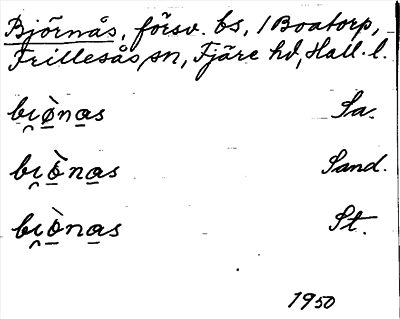 Björnås, försv. bs, i Boatorp,
Frillesås sn, Fjäre hd, Hall. l.
bı̯ø̀nas Sa.
bı̯ò̱nas Sand.
bı̯ò̱nas St.
1950